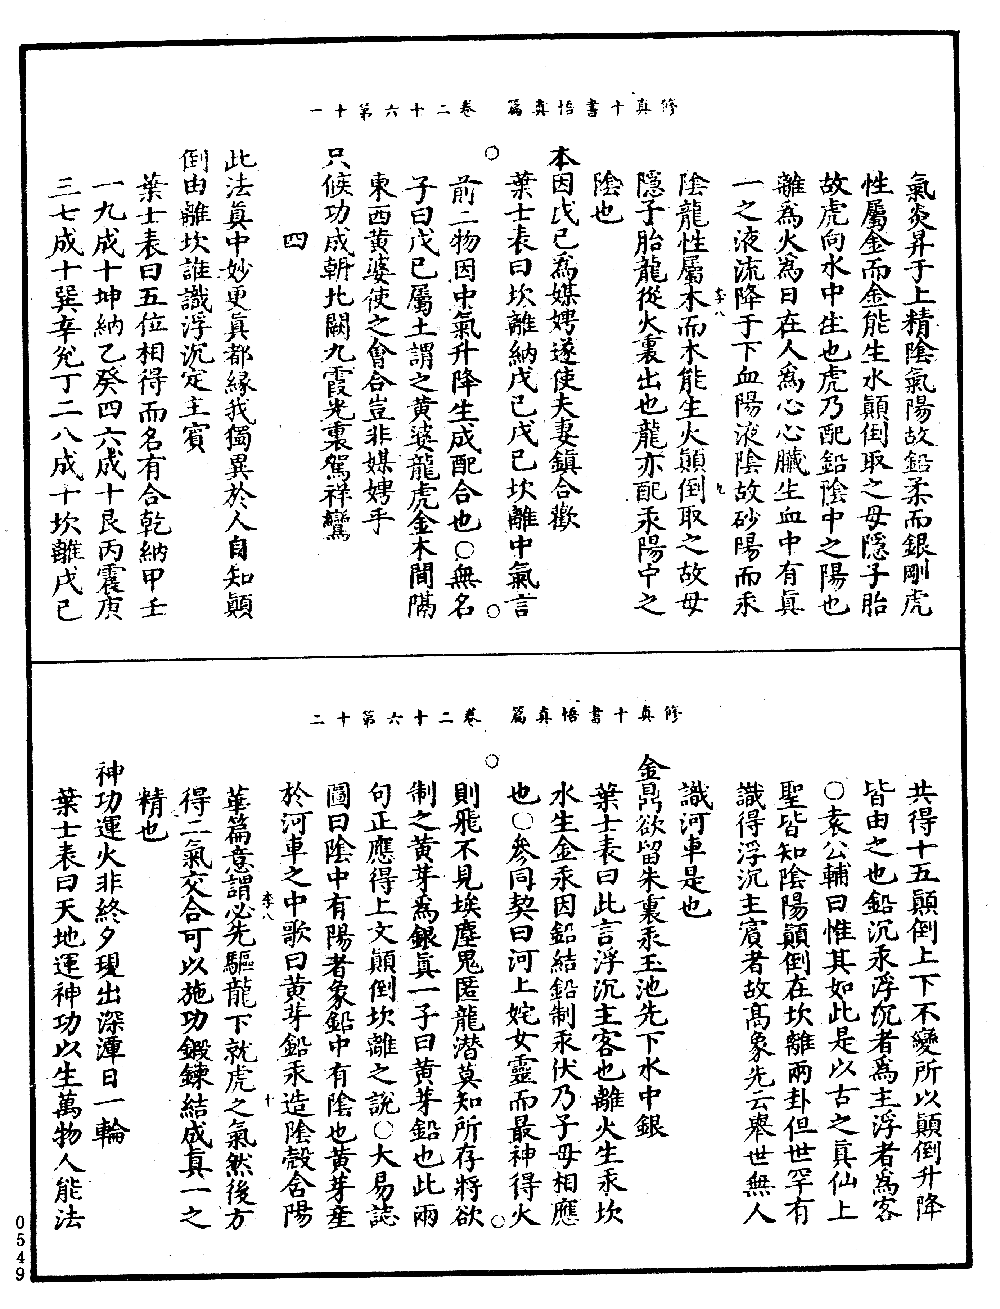 修真十書悟真篇　卷二十六第十一
氣炎昇于上精陰氣陽故鉛柔而銀剛虎
性屬金而金能生水顛倒取之母隱子胎
故虎向水中生也虎乃配鉛陰中之陽也
離為火為日在人為心心臟生血血中有真
一之液流降于下血陽液陰故砂陽而汞
陰龍性屬木而木能生火顛倒取之故母
隱子胎龍從火裏出也龍亦配汞陽中之
陰也
本因戊己為媒娉遂使夫妻鎮合歡
葉士表曰坎離納戊己戊己坎離中氣言
前二物因中氣升降生成配合也○無名
子曰戊己屬土謂之黃婆龍虎金木間隔
東西黃婆使之會合豈非媒娉乎
只候功成朝北闕九霞光裏駕祥鸞
四
此法真中妙更真都緣我獨異於人自知顛
倒由離坎誰識浮沉定主賓
葉士表曰五位相得而名有合乾納甲壬
一九成十坤納乙癸四六成十艮丙震庚
三七成十巽辛兌丁二八成十坎離戊己
李八
九
修真十書悟真篇　卷二十六第十二
共得十五顛倒上下不變所以顛倒升降
皆由之也鉛沉汞浮沉者為主浮者為客
○袁公輔曰惟其如此是以古之真仙上
聖皆知陰陽顛倒在坎離兩卦但世罕有
識得浮沉主賓者故高象先云舉世無人
識河車是也
金鼎欲留朱裏汞玉池先下水中銀
葉士表曰此言浮沉主客也離火生汞坎
水生金汞因鉛結鉛制汞伏乃子母相應
也○參同契曰河上姹女靈而最神得火
則飛不見埃塵鬼匿龍潛莫知所存將欲
制之黃芽為銀真一子曰黃芽鉛也此兩
句正應得上文顛倒坎離之說○大易誌
圖曰陰中有陽者象鉛中有陰也黃芽產
於河車之中歌曰黃芽鉛汞造陰殼含陽
華篇意謂必先驅龍下就虎之氣然後方
得二氣交合可以施功鍛鍊結成真一之
精也
神功運火非終夕現出深潭日一輪
葉士表曰天地運神功以生萬物人能法
李八
十
0549